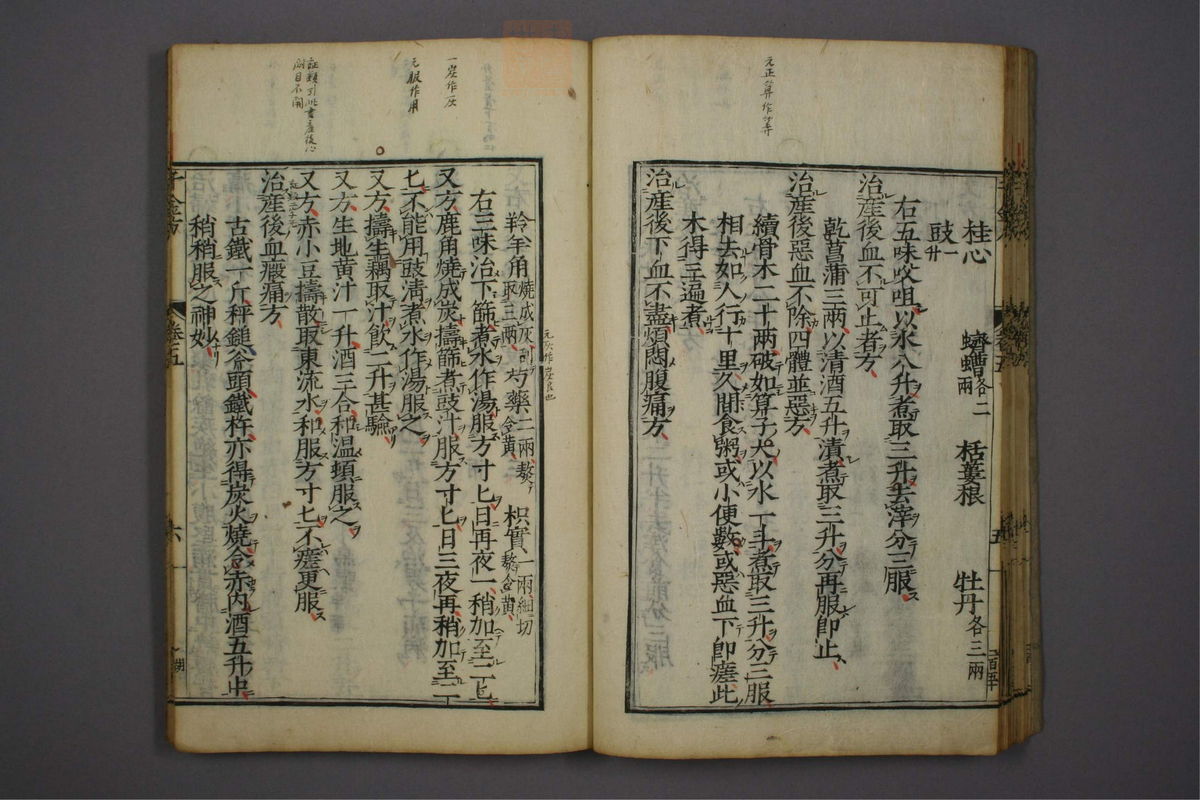 元正算作筭
桂心　蠐螬各二兩　栝蔞根　牡丹各三兩
豉一升
右五味㕮咀以水八升煮取三升去滓分三服
治産後血不可止者方
乾菖蒲三兩以清酒五升漬煮取三升分再服即止
治産後惡血不除四體並惡方
續骨木二十兩破如筭子大以水一斗煮取三升分三服
相去如人行十里久間食粥或小便數或惡血下即瘥此
木得三遍煮
治産後下血不盡煩悶腹痛方
一炭作灰
元服作用
証類引此書産後心
悶目不開
元灰作炭良也
羚羊角燒成灰刮取三兩　芍藥二兩熬令黄　枳實一兩細切熬令黄
右三味治下篩煮水作湯服方寸匕日再夜一稍加至二匕
又方鹿角燒成炭擣篩煮豉汁服方寸匕日三夜再稍加至二
匕不能用豉清煮水作湯服之
又方擣生藕取汁飲二升甚驗
又方生地黄汁一升酒三合和温頓服之
又方赤小豆擣散取東流水和服方寸匕不瘥更服
治産後血瘕痛方
古鐵一斤秤鎚斧頭鐵杵亦得炭火燒令赤内酒五升中
稍稍服之神妙
千金方　卷五　六